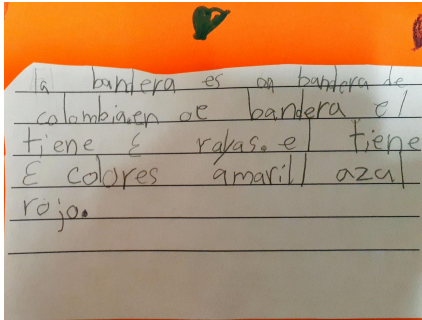 la bandera es on bandera de
colombia.en oe bandera el
tiene 3 rayas. el tiene
3 colores amarill azul
rojo.